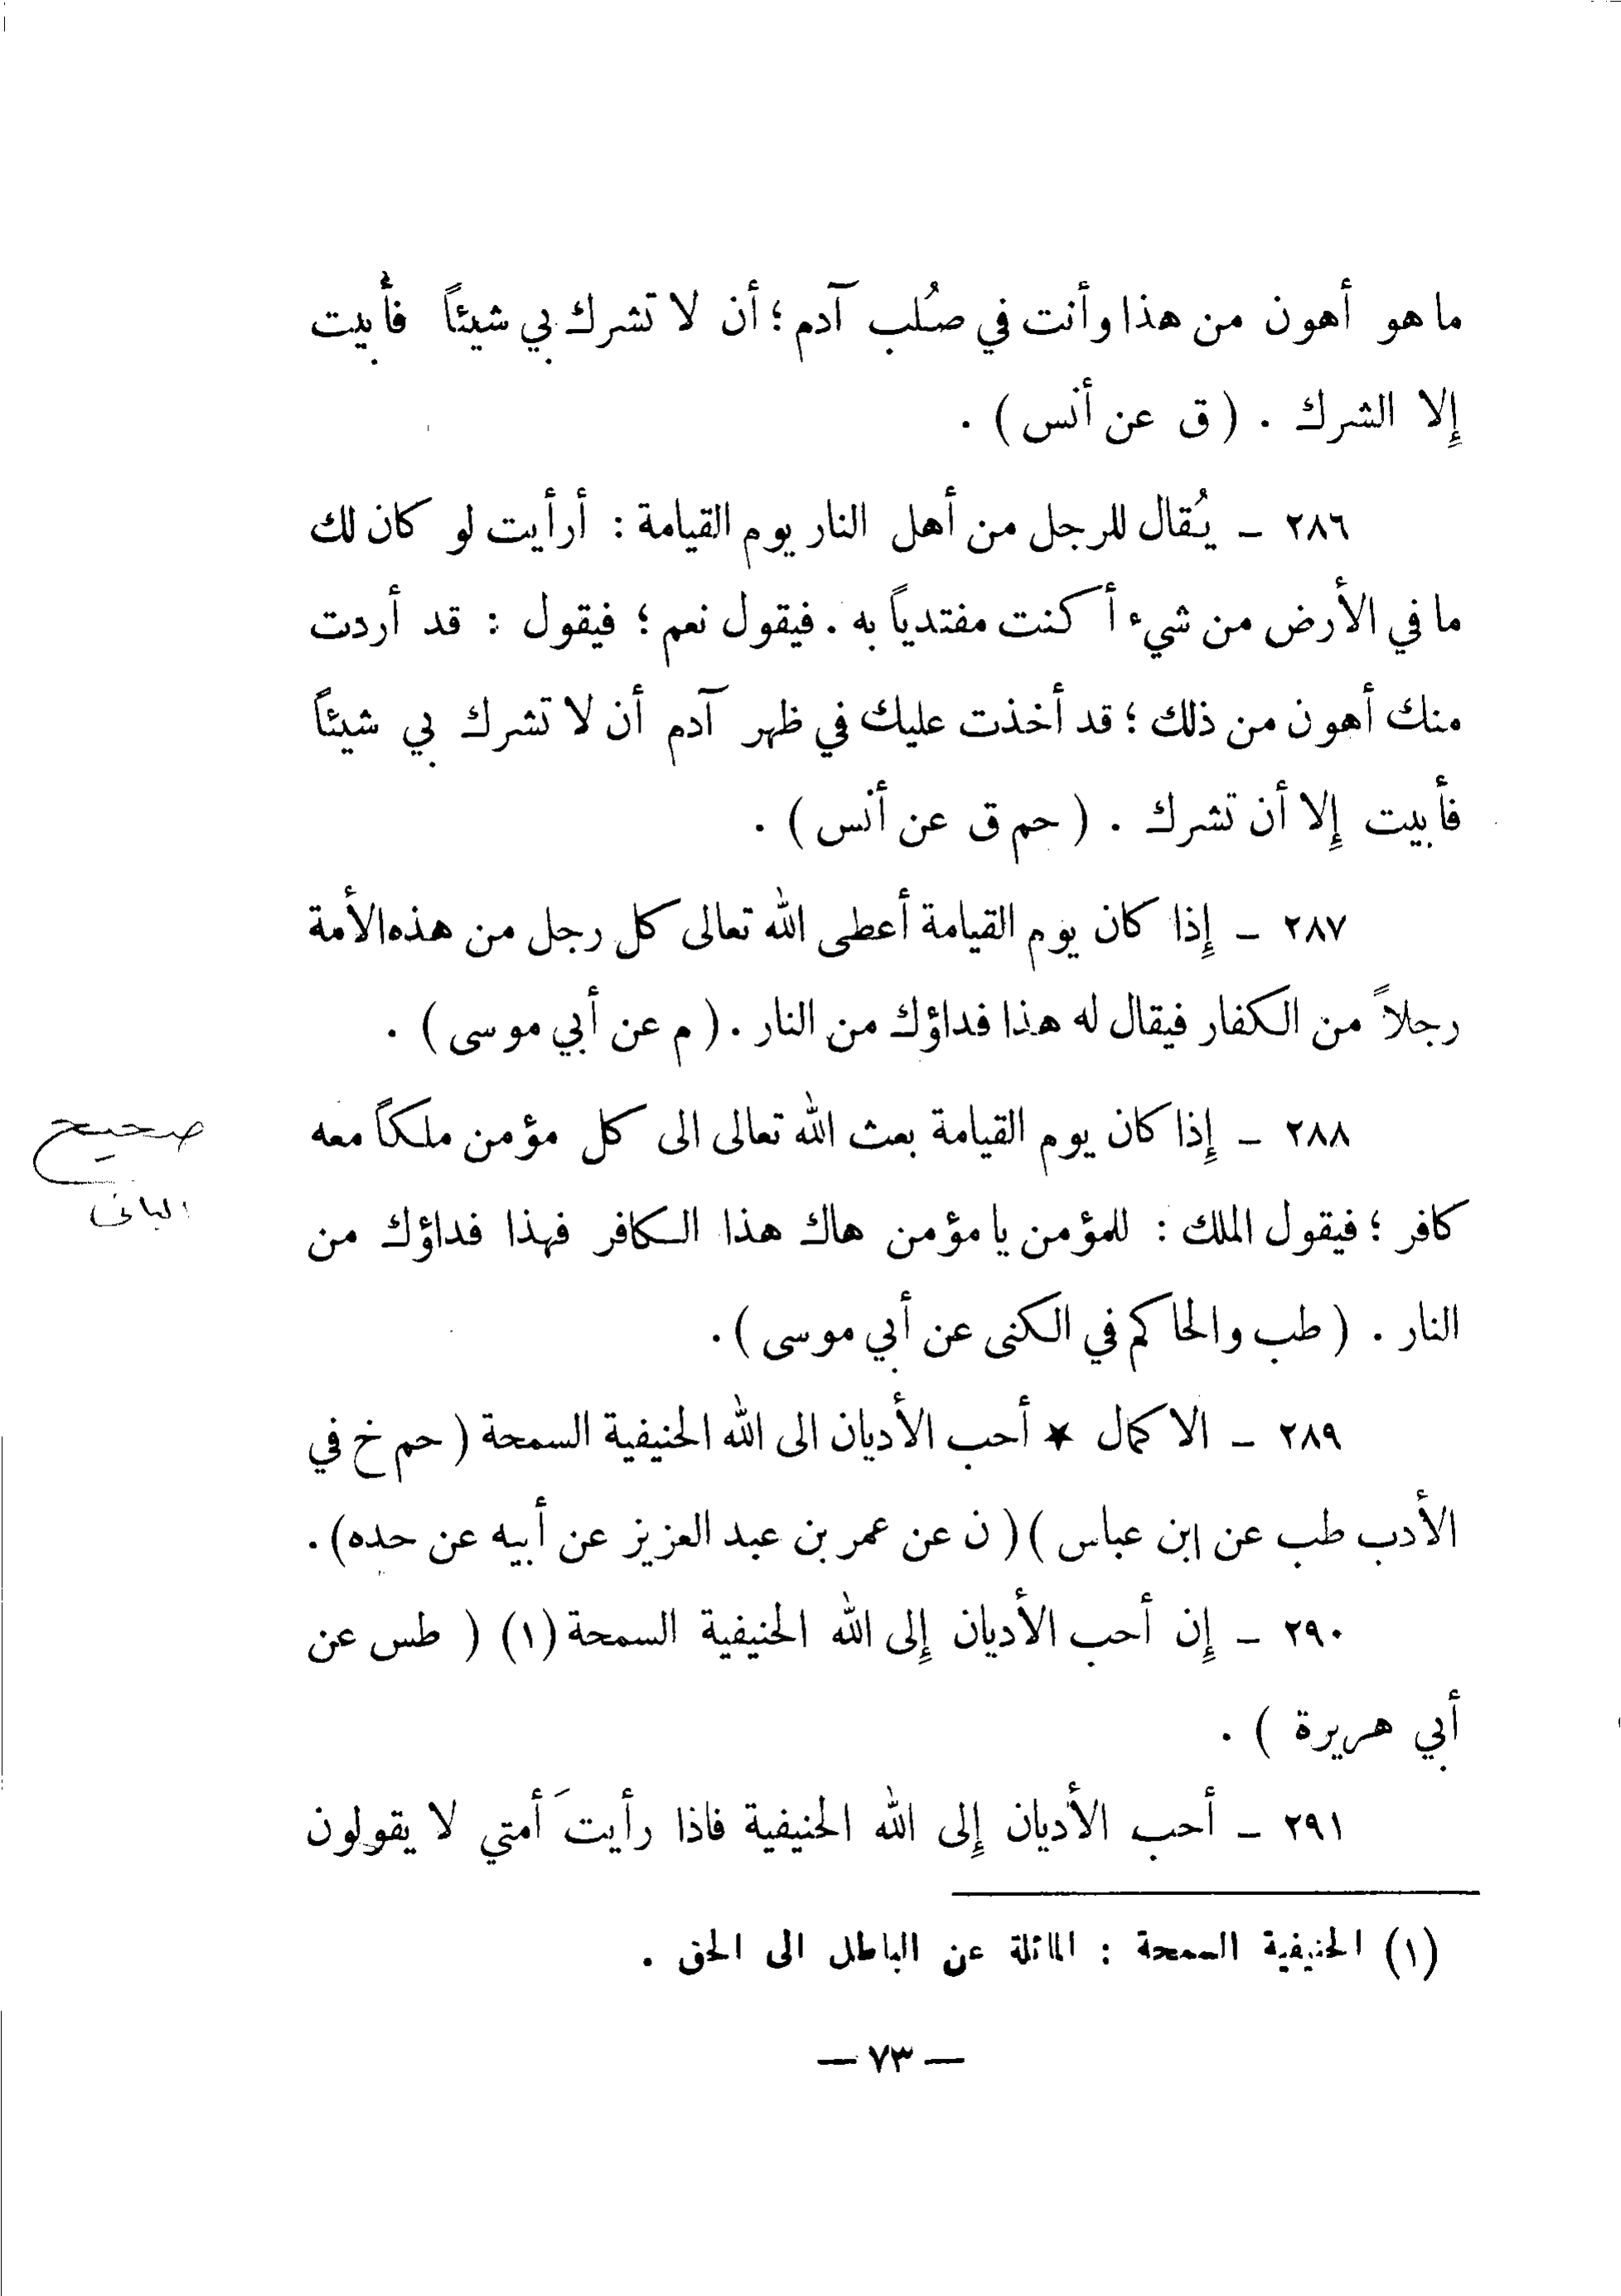 ما هو أهون من هذا وأنت في صُلب آدم ؛ أن لا تشرك بي شيئاً فأبيت
إِلا الشرك . ( ق عن أنس ) .
٢٨٦ – يُقال للرجل من أهل النار يوم القيامة : أرأيت لو كان لك
ما في الأرض من شيء أكنت مفتدياً به . فيقول نعم ؛ فيقول : قد أردت
منك أهون من ذلك ؛ قد أخذت عليك في ظهر آدم أن لا تشرك بي شيئاً
فأبيت إِلا أن تشرك . ( حم ق عن أنس ) .
٢٨٧ – إِذا كان يوم القيامة أعطى الله تعالى كل رجل من هذه الأمة
رجلاً من الكفار فيقال له هذا فداؤك من النار . ( م عن أبي موسى ) .
٢٨٨ – إِذا كان يوم القيامة بعث الله تعالى الى كل مؤمن ملكاً معه
صحيح
كافر ؛ فيقول الملك : للمؤمن يا مؤمن هاك هذا الكافر فهذا فداؤك من
البانى
النار . ( طب والحاكم في الكنى عن أبي موسى ) .
٢٨٩ – الاكمال ★ أحب الأديان الى الله الحنيفية السمحة ( حم خ في
الأدب طب عن ابن عباس ) ( ن عن عمر بن عبد العزيز عن أبيه عن حده ) .
٢٩٠ – إِن أحب الأديان إِلى الله الحنيفية السمحة (١) ( طس عن
أبي هريرة ) .
٢٩١ – أحب الأديان إِلى الله الحنيفية فاذا رأيتَ أمتي لا يقولون
(١) الحنيفية السمحة : المائلة عن الباطل الى الحق .
– ٧٣ –